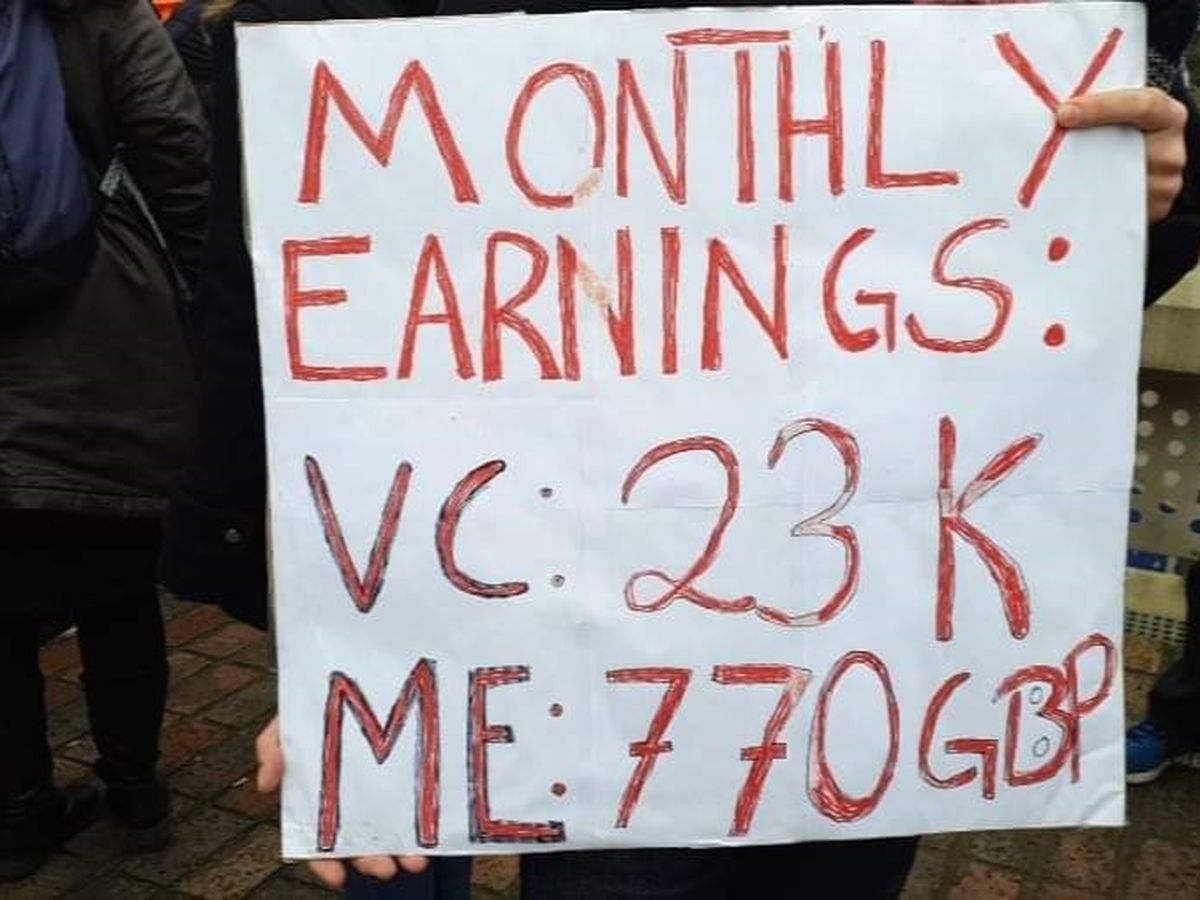 MONTHLY
EARNINGS:
VC: 23K
ME: 770GBP